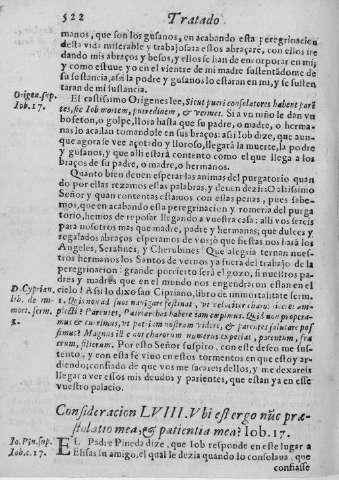 522 Tratado
manos, que son los gusanos, en acabando esta peregrinacion
desta vida miserable y trabajosa estos abraçarè, con ellos ire
dando mis abraços y besos, y ellos se han de encorporar en mi;
y como estuue yo en el vientre de mi madre sustentãdome de
su sustancia, assi la podre y gusanos lo estaran en mi, y se susten
taran de mi sustancia.
Origen. sup. Iob. 17.
El castissimo Origenes lee, Sicut pueri consolatores habent parẽ
tes, sic Iob mortem, putredinem, & vermes. Si a vn niño le dan vn
bofeton, o golpe, llora hasta que su padre, o madre, o herma-
nas lo acallan tomandole en sus braços: assi Iob dize, que aun-
que agora se vee açotado y lloroso, llegarà la muerte, la podre
y gusanos, y que alli estarà contento como el que llega a los
braços de su padre, o madre, o hermanos.
Quanto bien deuen esperar las animas del purgatorio quan
do por ellas rezamos estas palabras, y deuen dezir: O altissimo
Señor y quan contentas estamos con estas penas, pues sabe-
mos, que en acabando esta peregrinacion y romeria del purga
torio, hemos de reposar llegando a vuestra casa: alli vos sereis
para nosotros mas que madre, padre y hermanas; que dulces y
regalados abraços esperamos de vos, o que fiestas nos harà los
Angeles, Serafines, y Cherubines! Que alegria ternan nues-
tros hermanos los Santos de vernos ya fuera del trabajo de la
peregrinacion: grande por cierto serà el gozo, si nuestros pa-
dres y madres que en el mundo nos engendraron estan en el
D. Cyprian. lib. de im-mort. serm.
cielo! Assi lo dixo san Cipriano, libro de immortalitate serm.
Quis non ad suos nauigare festinat,
Parentes, Patriarchas habere iam cœpimus. Quid non propera-
mus & currimus, vt patriam nostram videre, & parentes salutare pos
simus? Magnus ill c charorum numerus expectat, parentum, fra
trum, filiorum. Por esto Señor suspiro, con este deseo me sus-
tento, y con esta fè viuo en estos tormentos en que estoy ar-
diendo; confiado de que vos me sacareis dellos, y me dexareis
llegar a ver essos mis deudos y parientes, que estan ya en esse
vuestro palacio.
Consideracion LVIII. Vbi est ergo nũc præ-
stolatio mea, & patientia mea? Iob. 17.
Io. Pin. sup. Iob. c. 17.
EL Padre Pineda dize, que Iob responde en este lugar a
Elifas su amigo, el qual le dezia quando lo consolaua, que
confiasse